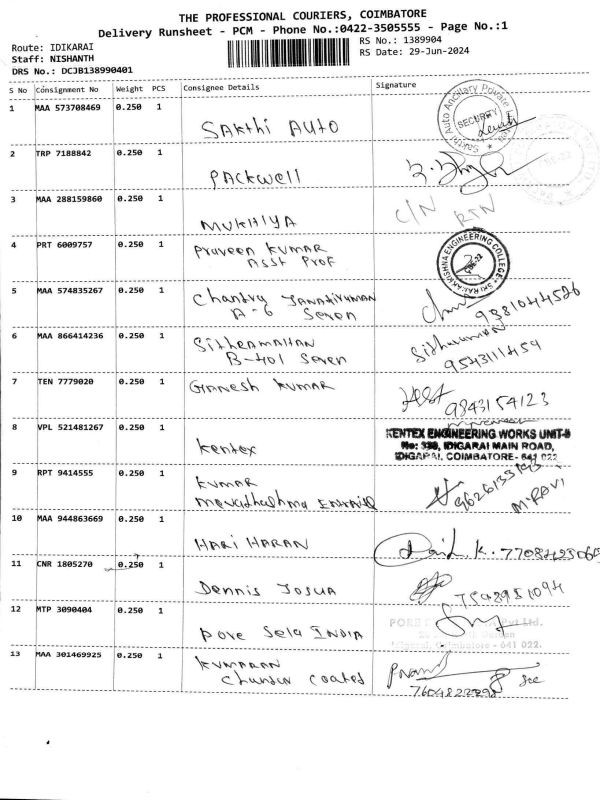 THE PROFESSIONAL COURIERS, COIMBATORE
Delivery Runsheet - PCM - Phone No.:0422-3505555 - Page No.:1
Route: IDIKARAI
RS No.: 1389904
Staff: NISHANTH
RS Date: 29-Jun-2024
DRS No.: DCJB138990401
S No Consignment No Weight PCS Consignee Details Signature
1 MAA 573708469 0.250 1
SAKthi AUTO
Sakthi Auto Ancillary Private
SECURITY
2 TRP 7188842 0.250 1
PACKwell
3 MAA 288159860 0.250 1
MUKHIYA
C/N RTN
4 PRT 6009757 0.250 1
Praveen KUMAR
Asst Prof
SRI RAMAKRISHNA ENGINEERING COLLEGE
5 MAA 574835267 0.250 1
Seven
9381044526
6 MAA 866414236 0.250 1
B-401 Seven
9543111459
7 TEN 7779020 0.250 1
Ganesh KUMAR
9843154123
8 VPL 521481267 0.250 1
Kentex
KENTEX ENGINEERING WORKS UNIT-II
No: 330, IDIGARAI MAIN ROAD,
IDIGARAI, COIMBATORE- 641 022
9 RPT 9414555 0.250 1
KUMAR
M.RAVI
10 MAA 944863669 0.250 1
HARI HARAN
11 CNR 1805270 0.250 1
Dennis JOSUA
12 MTP 3090404 0.250 1
Pore Sela INDIA
Pvt Ltd.
Coimbatore - 641 022.
13 MAA 301469925 0.250 1
KUMARAN
Coated